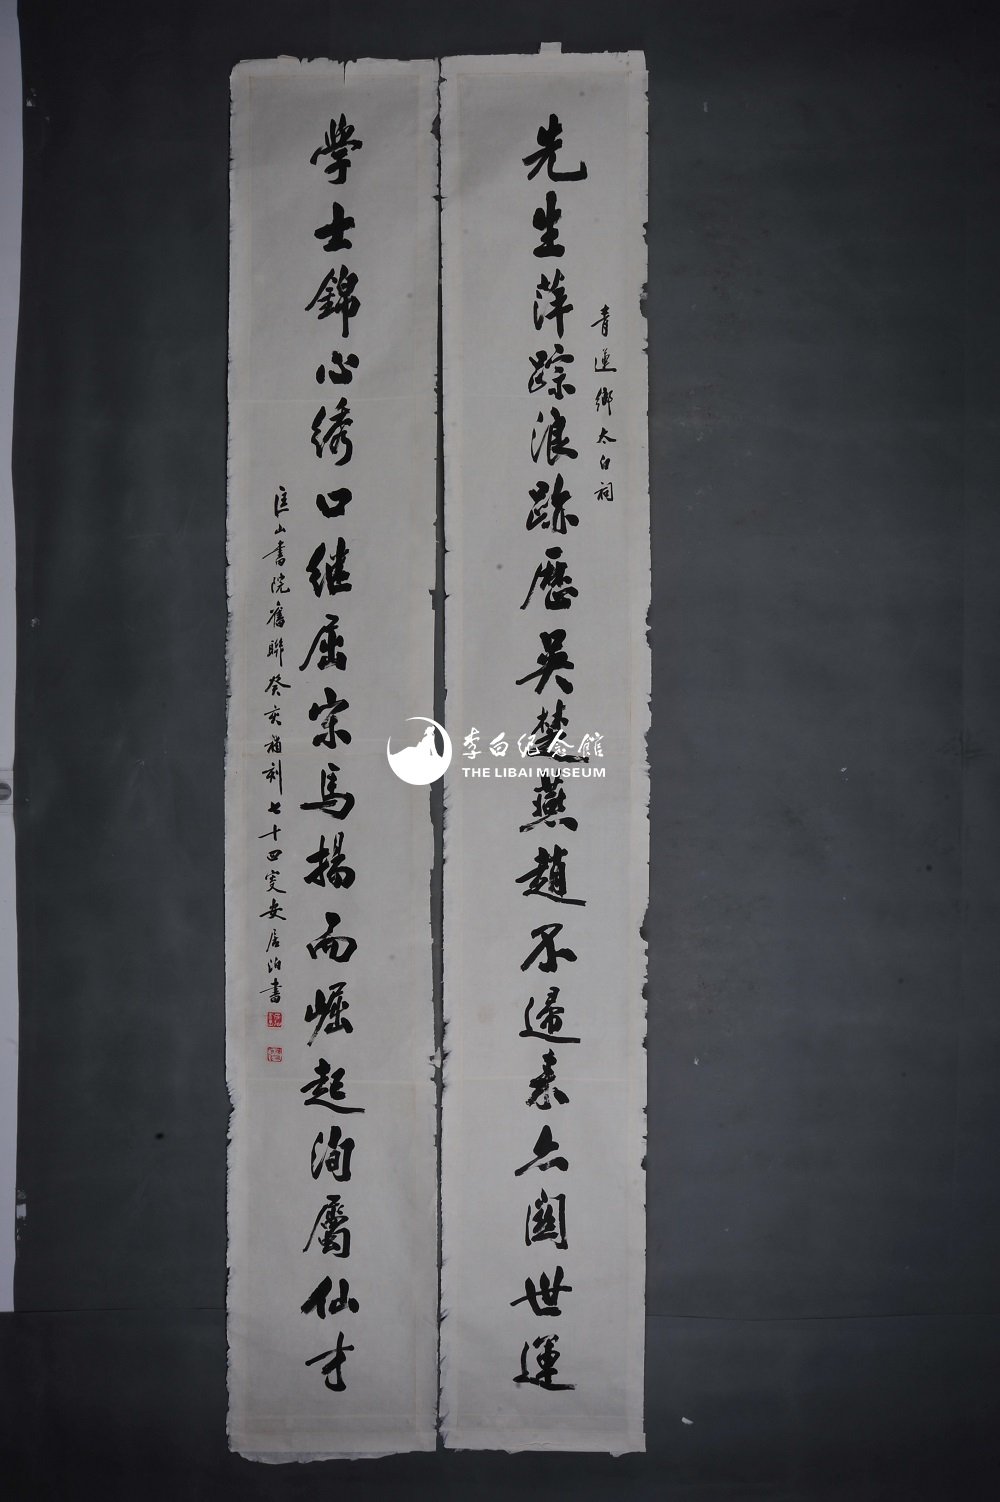 青蓮鄉太白祠
先生萍踪浪跡歷吳楚燕趙不歸来亦関世運
學士錦心绣口继屈宋馬揚而崛起洵屬仙才
匡山書院舊聯癸亥補刻七十四叟安居泊書
李白纪念館
THE LIBAI MUSEUM